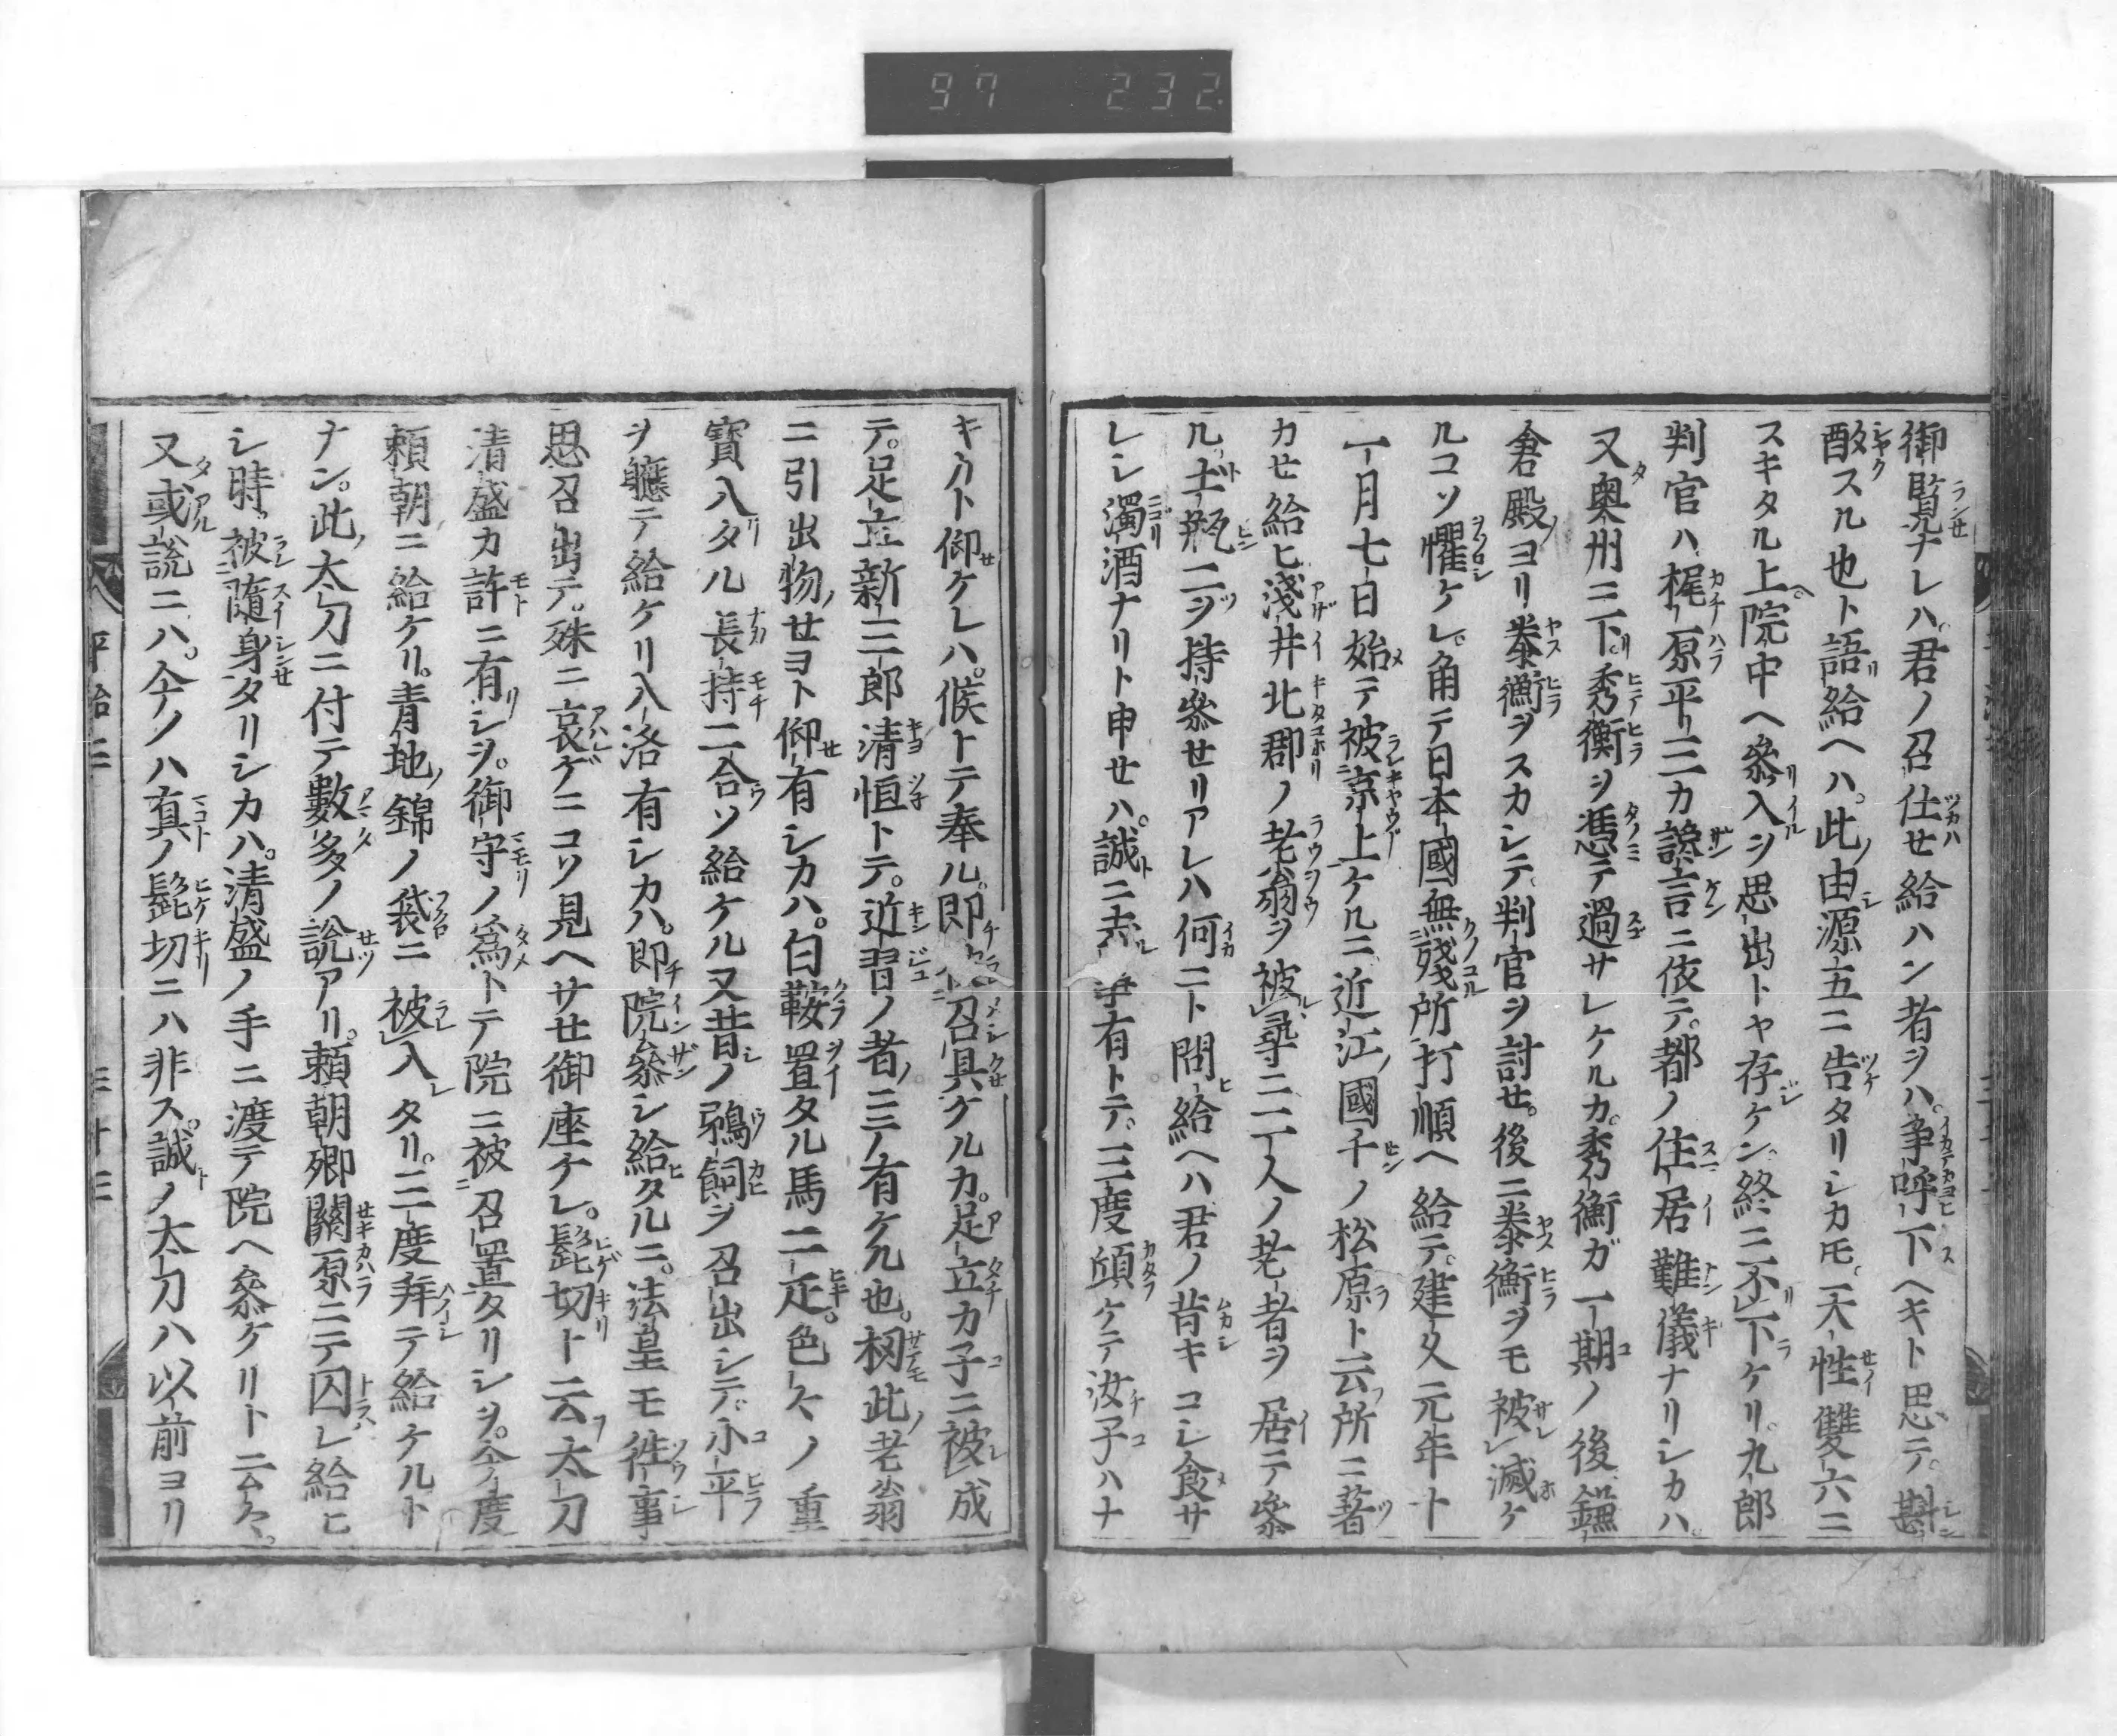 97 232
御覧ナレハ。君ノ召仕せ給ハン者ヲハ。争呼下ヘキト思テ。斟
酌スル也ト語給ヘハ。此由源五ニ告タリシカモ。天性雙六ニ
スキタル上。院中ヘ参入ヲ思出トヤ存ケン。終ニ不下ケリ。九郎
判官ハ梶原平三カ讒言ニ依テ。都ノ住居難儀ナリシカハ。
又奥州ニ下。秀衡ヲ憑テ過サレケルカ。秀衡ガ一期ノ後鎌
倉殿ヨリ泰衡ヲスカシテ。判官ヲ討せ。後ニ泰衡ヲモ被滅ケ
ルコソ懼ケレ。角テ日本國無残所打順ヘ給テ。建久元年十
一月七日始テ被京上ケルニ近江國千ノ松原ト云所ニ著
カせ給ヒ淺井北郡ノ老翁ヲ被尋ニ二人ノ老者ヲ居テ参
ル。土瓶二ヲ持参せリアレハ何ニト問給ヘハ君ノ昔キコシ食サ
レシ濁酒ナリト申せハ。誠ニ去事有トテ。三度傾ケテ汝子ハナ
キカト仰ケレハ。候トテ奉ル。即召具ケルカ。足立カ子ニ被成
テ。足立新三郎清恒トテ。近習ノ者ニテ有ケル也。扨此老翁
ニ引出物せヨト仰有シカハ。白鞍置タル馬二疋。色々ノ重
寶入タル長持二合ソ給ケル又昔ノ鵜飼ヲ召出シテ。小平
ヲ軈テ給ケリ入洛有シカハ。即院参シ給タルニ。法皇モ往事
思召出テ。殊ニ哀ゲニコソ見ヘサせ御座ケレ。髭切ト云太刀
清盛カ許ニ有シヲ。御守ノ為トテ院ニ被召置タリシヲ。今度
頼朝ニ給ケリ。青地錦ノ袋ニ被入タリ。三度拜テ給ケルト
ナン。此太刀ニ付テ數多ノ説アリ。頼朝卿關原ニテ囚レ給ヒ
シ時。被随身タリシカハ。清盛ノ手ニ渡テ院ヘ参ケリト云々。
又或説ニハ。今ノハ真ノ髭切ニハ非ス。誠ノ太刀ハ以前ヨリ
平治三
三十三